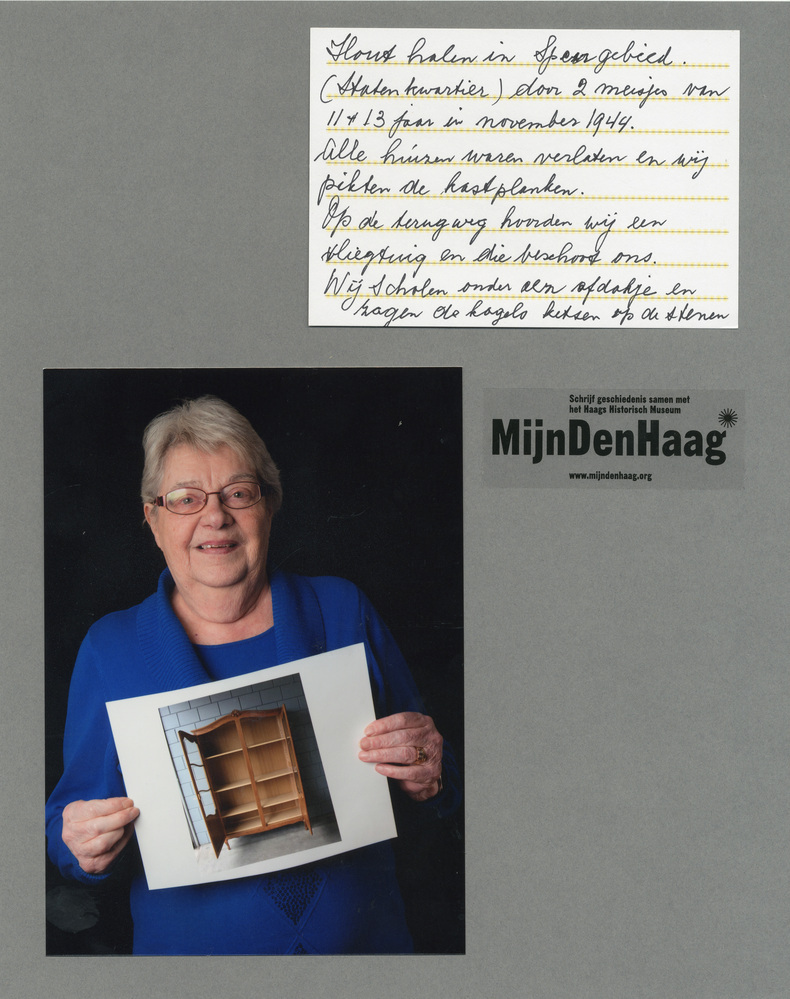 Hout halen in Spergebied.
(Statenkwartier) door 2 meisjes van
11 + 13 jaar in november 1944.
Alle huizen waren verlaten en wij
pikten de kastplanken.
Op de terugweg hoorden wij een
vliegtuig en die beschoot ons.
Wij scholen onder een afdakje en
zagen de kogels ketsen op de stenen
Schrijf geschiedenis samen met
het Haags Historisch Museum
MijnDenHaag
www.mijndenhaag.org